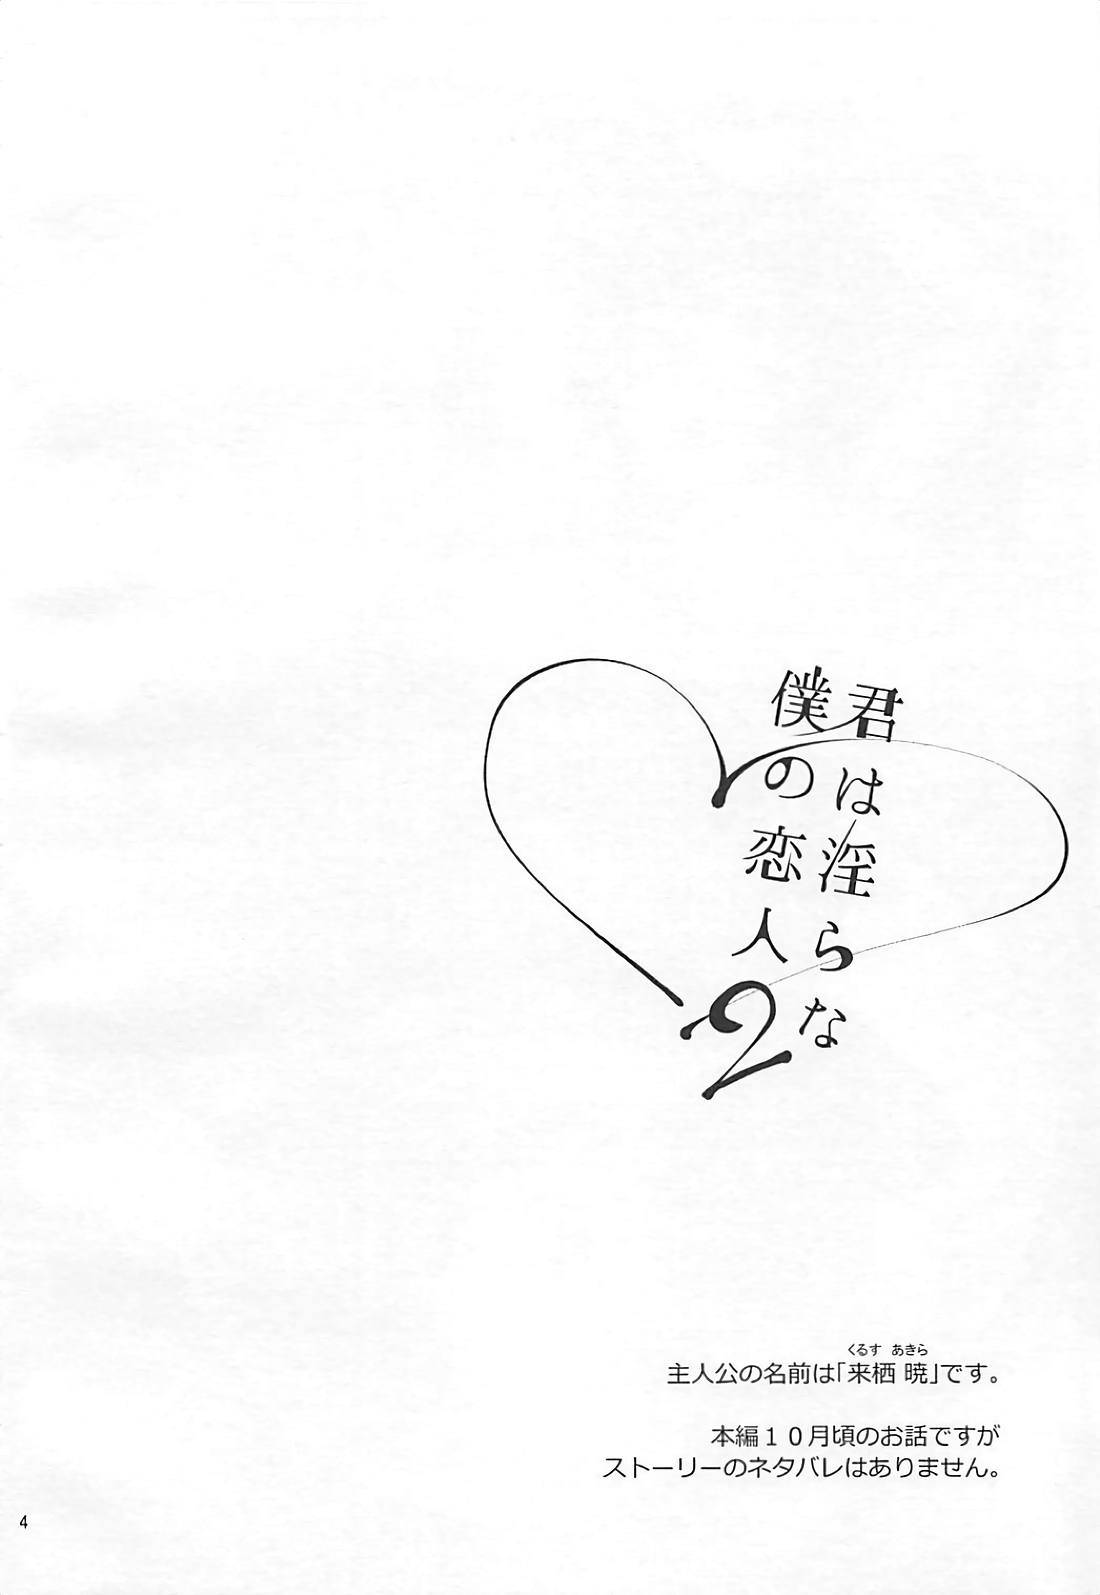 君は淫らな
僕の恋人2
くるす あきら
主人公の名前は「来栖 暁」です。
本編１０月頃のお話ですが
ストーリーのネタバレはありません。
4